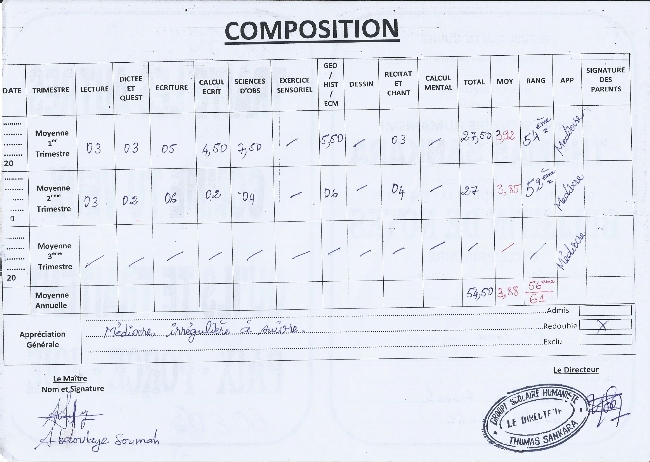 COMPOSITION
DATE TRIMESTRE LECTURE DICTEE ET QUEST ECRITURE CALCUL ECRIT SCIENCES D'OBS EXERCICE SENSORIEL GEO / HIST / ECM DESSIN RECITAT ET CHANT CALCUL MENTAL TOTAL MOY RANG APP SIGNATURE DES PARENTS
........ ........ 20 Moyenne 1er Trimestre 03 03 05 4,50 7,50 / 5,50 / 03 / 27,50 3,92 54ème Médiocre
Moyenne 2ème Trimestre 03 02 06 02 04 / 06 / 04 / 27 3,85 59è Médiocre
........ ........ 20 Moyenne 3ème Trimestre / / / / / / / / / / / / / Médiocre
Moyenne Annuelle 54,50 3,88 56ème/61
Appréciation Générale Médiocre, irrégulière à suivre
Admis
Redouble X
Exclu
Le Maître
Nom et Signature
Abdoulaye Soumah
Le Directeur
GROUPE SCOLAIRE HUMANISTE
LE DIRECTEUR
THOMAS SANKARA